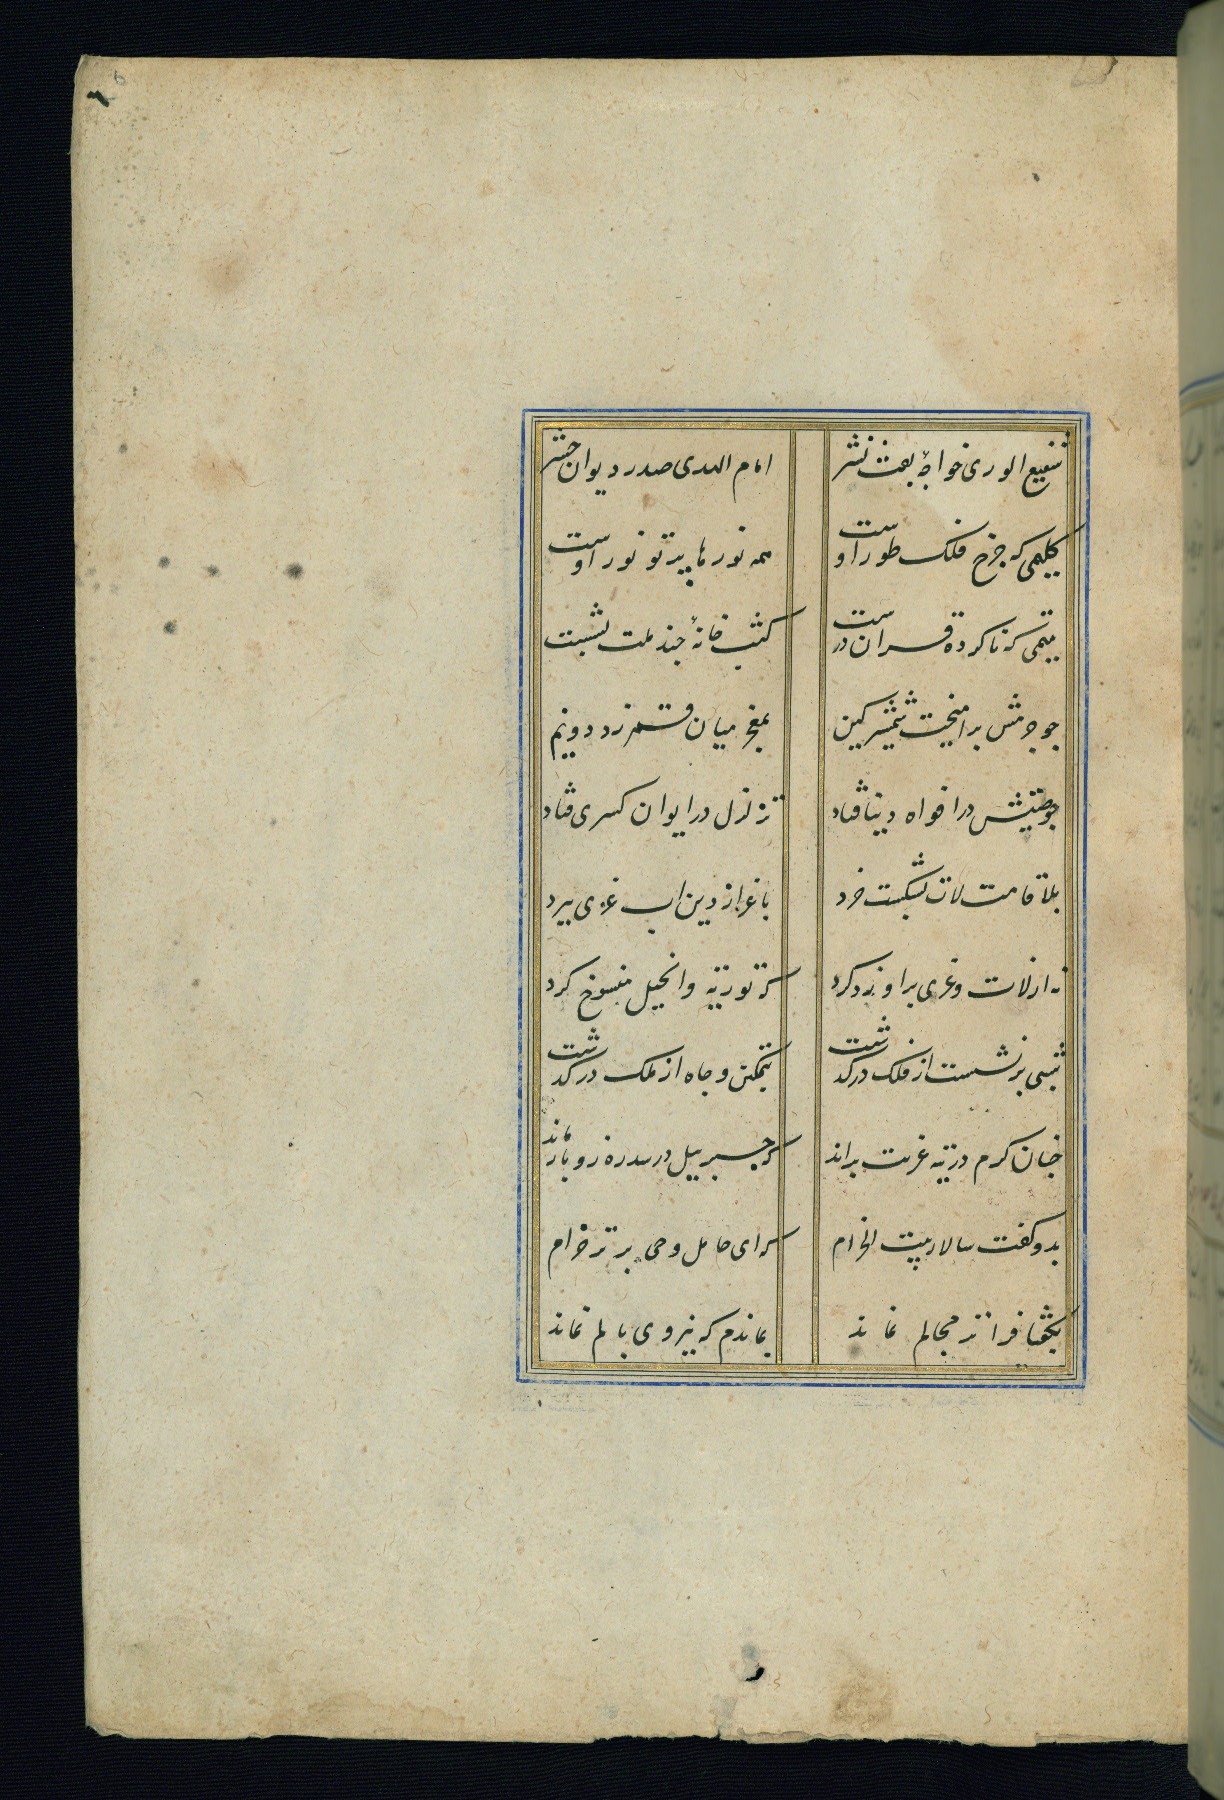 شفیع الوری خواجهٔ بعث نشر امام الهدی صدر دیوان حشر
کلیمی که چرخ فلک طور اوست همه نورها پرتو نور اوست
یتیمی که ناکرده قران درست کتب خانهٔ چند ملت بشست
چو عزمش برامیخت شمشیر کین بمعجز میان قمر زد دو نیم
چو صیتش در افواه دنیا فتاد تزلزل در ایوان کسری فتاد
بلا قامت لات بشکست خرد باغراز دین اب عزی ببرد
نه از لات و عزی براورد کرد که توریة و انجیل منسوخ کرد
شبی برنشست از فلک درگذشت بتمکین و جاه از ملک درگذشت
چنان کرم در تیه قربت براند که جبریل در سدره زو بازماند
بدو کفت سالار بیت الحرام که ای حامل وحی برتر خرام
بکفتا فراتر مجالم نماند بماندم که نیروی بالم نماند